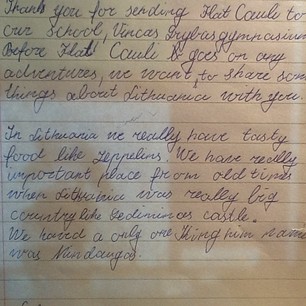 Thank you for sending Flat Cauli to
our school, Vincas Grybas gymnasium
Before Flat Cauli goes on any
adventures, we want to share som
things about Lithuania with you.
In Lithuania we really have tasty
food like zeppelins. We have really
important place from old times
when Lithuania was really big
country like Gediminas castle.
We haved a only one King him name
was Mindaugas.